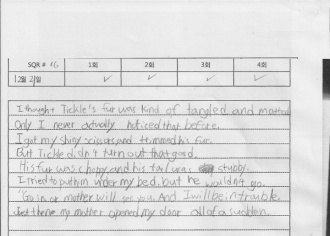 SQR # 16 1회 2회 3회 4회
12월 21일 ✓ ✓ ✓ ✓
I thought Tickle's fur was kind of tangled and matted
Only I never actually noticed that before.
I got my shiny scissors and trimmed his fur.
But Tickle didn't turn out that good.
His fur was choppy and his tail was stubby.
I tried to put him under my bed, but he wouldn't go.
"Go in or mother will see you. And I will be in trouble.
Just then my mother opened my door all of a sudden.